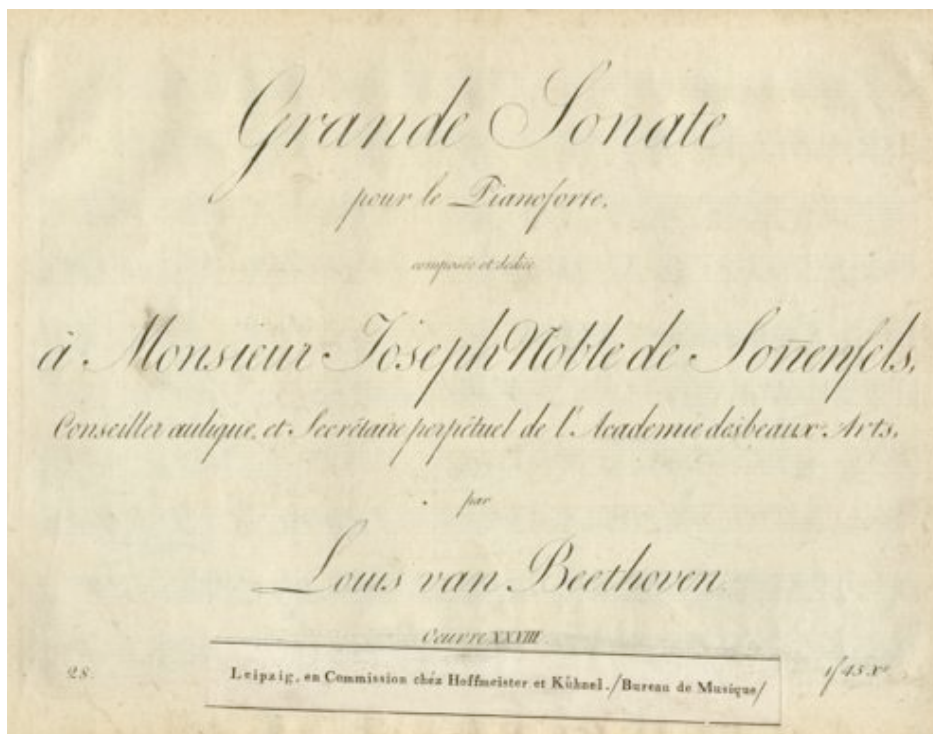 Grande Sonate
pour le Pianoforte.
composée et dediée
à Monsieur Joseph Noble de Soñenfels,
Conseiller aulique, et Secrétaire perpétuel de l'Academie des beaux Arts,
par
Louis van Beethoven
Oeuvre XXVIII
28. Leipzig, en Commission chéz Hoffmeister et Kühnel. /Bureau de Musique/ 1f 45 Xr